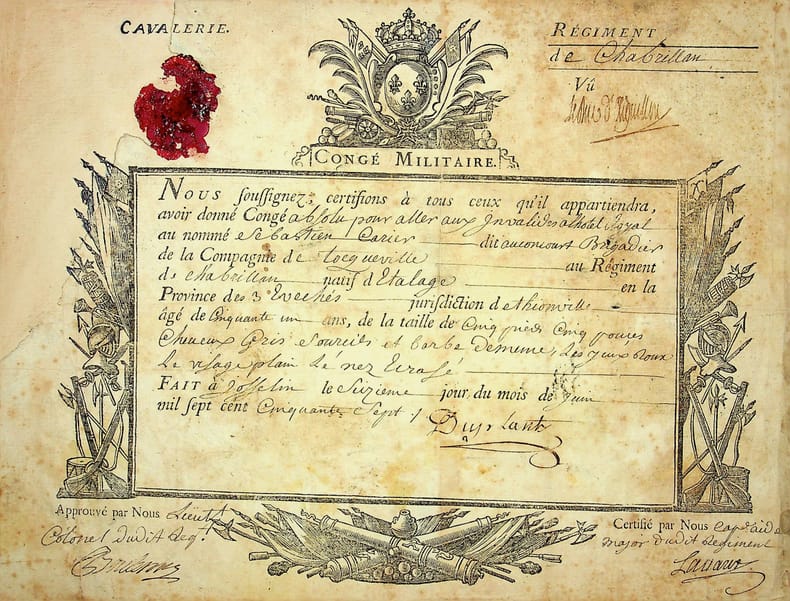 CAVALERIE.
RÉGIMENT
de Chabrillan
Vû
CONGÉ MILITAIRE.
NOUS souſſignez, certifions à tous ceux qu'il appartiendra,
avoir donné Congé absolu pour aller aux Invalides a lhotel Royal
au nommé Sebastien Carier dit auconcourt Brigadier
de la Compagnie de Tocqueville au Régiment
de Chabrillan natif d'Etalage en la
Province des 3 Evechés jurisdiction de thionville
âgé de Cinquante un ans, de la taille de Cinq pieds Cinq pouces
Cheveux Gris Sourcils et barbe de meme, Les yeux Roux
Le visage plain Le nez Ecrase
FAIT à Josselin le Seizieme jour du mois de Juin
mil ſept cent Cinquante Sept
Approuvé par Nous Lieut
Colonel dudit Reg
Certifié par Nous Cap aide
major dudit Regiment